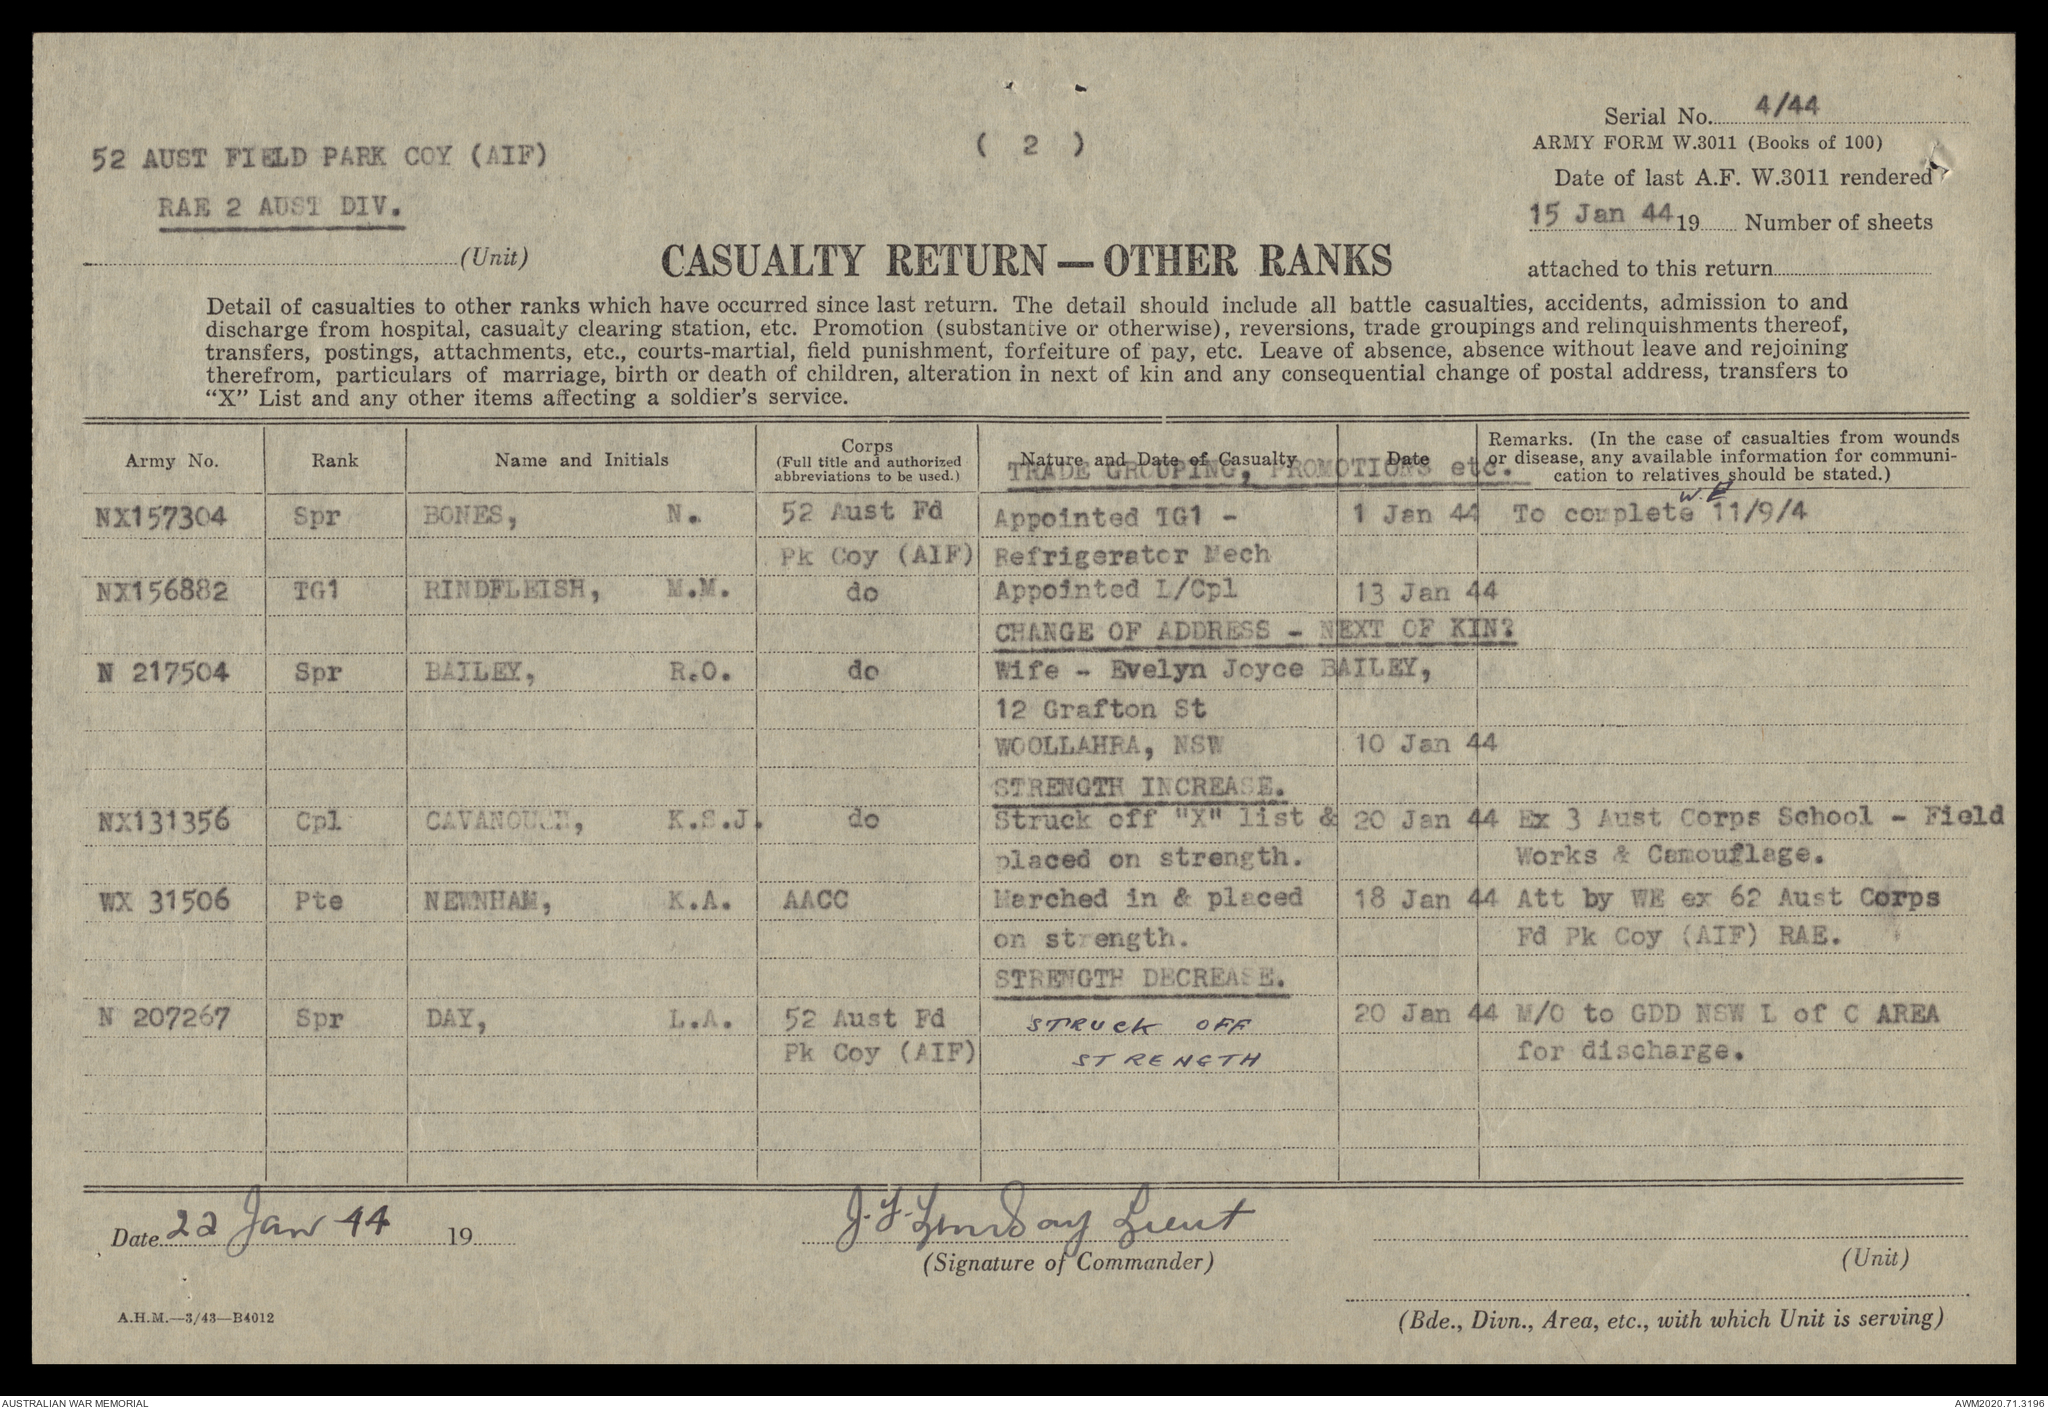 Serial No. 4/44
ARMY FORM W.3011 (Books of 100)
52 AUST FIELD PARK COY (AIF)
( 2 )
Date of last A.F. W.3011 rendered
RAE 2 AUST DIV.
15 Jan 44 19...... Number of sheets
(Unit)
CASUALTY RETURN — OTHER RANKS
attached to this return
Detail of casualties to other ranks which have occurred since last return. The detail should include all battle casualties, accidents, admission to and
discharge from hospital, casualty clearing station, etc. Promotion (substantive or otherwise), reversions, trade groupings and relinquishments thereof,
transfers, postings, attachments, etc., courts-martial, field punishment, forfeiture of pay, etc. Leave of absence, absence without leave and rejoining
therefrom, particulars of marriage, birth or death of children, alteration in next of kin and any consequential change of postal address, transfers to
"X" List and any other items affecting a soldier's service.
Army No. Rank Name and Initials Corps (Full title and authorized abbreviations to be used.) Nature and Date of Casualty Date Remarks. (In the case of casualties from wounds or disease, any available information for communication to relatives should be stated.)
TRADE GROUPING, PROMOTIONS etc.
NX157304 Spr BONES, N. 52 Aust Fd Appointed TG1 - 1 Jan 44 To complete W.E 11/9/4
Pk Coy (AIF) Refrigerator Mech
NX156882 TG1 RINDFLEISH, M.M. do Appointed L/Cpl 13 Jan 44
CHANGE OF ADDRESS - NEXT OF KIN?
N 217504 Spr BAILEY, R.O. do Wife - Evelyn Joyce BAILEY,
12 Grafton St
WOOLLAHRA, NSW 10 Jan 44
STRENGTH INCREASE.
NX131356 Cpl CAVANOUGH, K.S.J. do Struck off "X" list & 20 Jan 44 Ex 3 Aust Corps School - Field
placed on strength. Works & Camouflage.
WX 31506 Pte NEWNHAM, K.A. AACC Marched in & placed 18 Jan 44 Att by WE ex 62 Aust Corps
on strength. Fd Pk Coy (AIF) RAE.
STRENGTH DECREASE.
N 207267 Spr DAY, L.A. 52 Aust Fd STRUCK OFF 20 Jan 44 M/O to GDD NSW L of C AREA
Pk Coy (AIF) STRENGTH for discharge.
Date 22 Jan 44 19...... J.F. Lindsay Lieut
(Signature of Commander) (Unit)
A.H.M.—3/43—B4012
(Bde., Divn., Area, etc., with which Unit is serving)
AUSTRALIAN WAR MEMORIAL AWM2020.71.3196